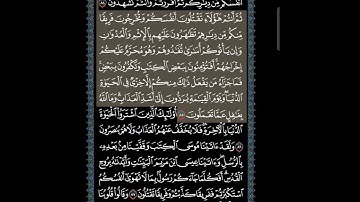 أَنفُسَكُم مِّن دِيَٰرِكُمْ ثُمَّ أَقْرَرْتُمْ وَأَنتُمْ تَشْهَدُونَ ٨٤
ثُمَّ أَنتُمْ هَٰٓؤُلَآءِ تَقْتُلُونَ أَنفُسَكُمْ وَتُخْرِجُونَ فَرِيقًا
مِّنكُم مِّن دِيَٰرِهِمْ تَظَٰهَرُونَ عَلَيْهِم بِٱلْإِثْمِ وَٱلْعُدْوَٰنِ
وَإِن يَأْتُوكُمْ أُسَٰرَىٰ تُفَٰدُوهُمْ وَهُوَ مُحَرَّمٌ عَلَيْكُمْ
إِخْرَاجُهُمْ أَفَتُؤْمِنُونَ بِبَعْضِ ٱلْكِتَٰبِ وَتَكْفُرُونَ بِبَعْضٍ
فَمَا جَزَآءُ مَن يَفْعَلُ ذَٰلِكَ مِنكُمْ إِلَّا خِزْىٌ فِى ٱلْحَيَوٰةِ
ٱلدُّنْيَا وَيَوْمَ ٱلْقِيَٰمَةِ يُرَدُّونَ إِلَىٰٓ أَشَدِّ ٱلْعَذَابِ وَمَا ٱللَّهُ
بِغَٰفِلٍ عَمَّا تَعْمَلُونَ ٨٥ أُو۟لَٰٓئِكَ ٱلَّذِينَ ٱشْتَرَوُا۟ ٱلْحَيَوٰةَ
ٱلدُّنْيَا بِٱلْءَاخِرَةِ فَلَا يُخَفَّفُ عَنْهُمُ ٱلْعَذَابُ وَلَا هُمْ يُنصَرُونَ
٨٦ وَلَقَدْ ءَاتَيْنَا مُوسَى ٱلْكِتَٰبَ وَقَفَّيْنَا مِنۢ بَعْدِهِۦ
بِٱلرُّسُلِ وَءَاتَيْنَا عِيسَى ٱبْنَ مَرْيَمَ ٱلْبَيِّنَٰتِ وَأَيَّدْنَٰهُ بِرُوحِ
ٱلْقُدُسِ أَفَكُلَّمَا جَآءَكُمْ رَسُولٌۢ بِمَا لَا تَهْوَىٰٓ أَنفُسُكُمُ
ٱسْتَكْبَرْتُمْ فَفَرِيقًا كَذَّبْتُمْ وَفَرِيقًا تَقْتُلُونَ ٨٧ وَقَالُوا۟ قُلُوبُنَا